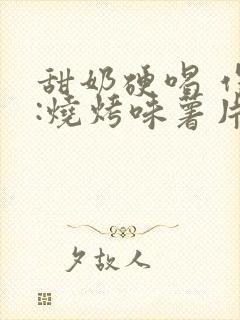 甜奶硬唱
:燒烤味薯片
夕故人